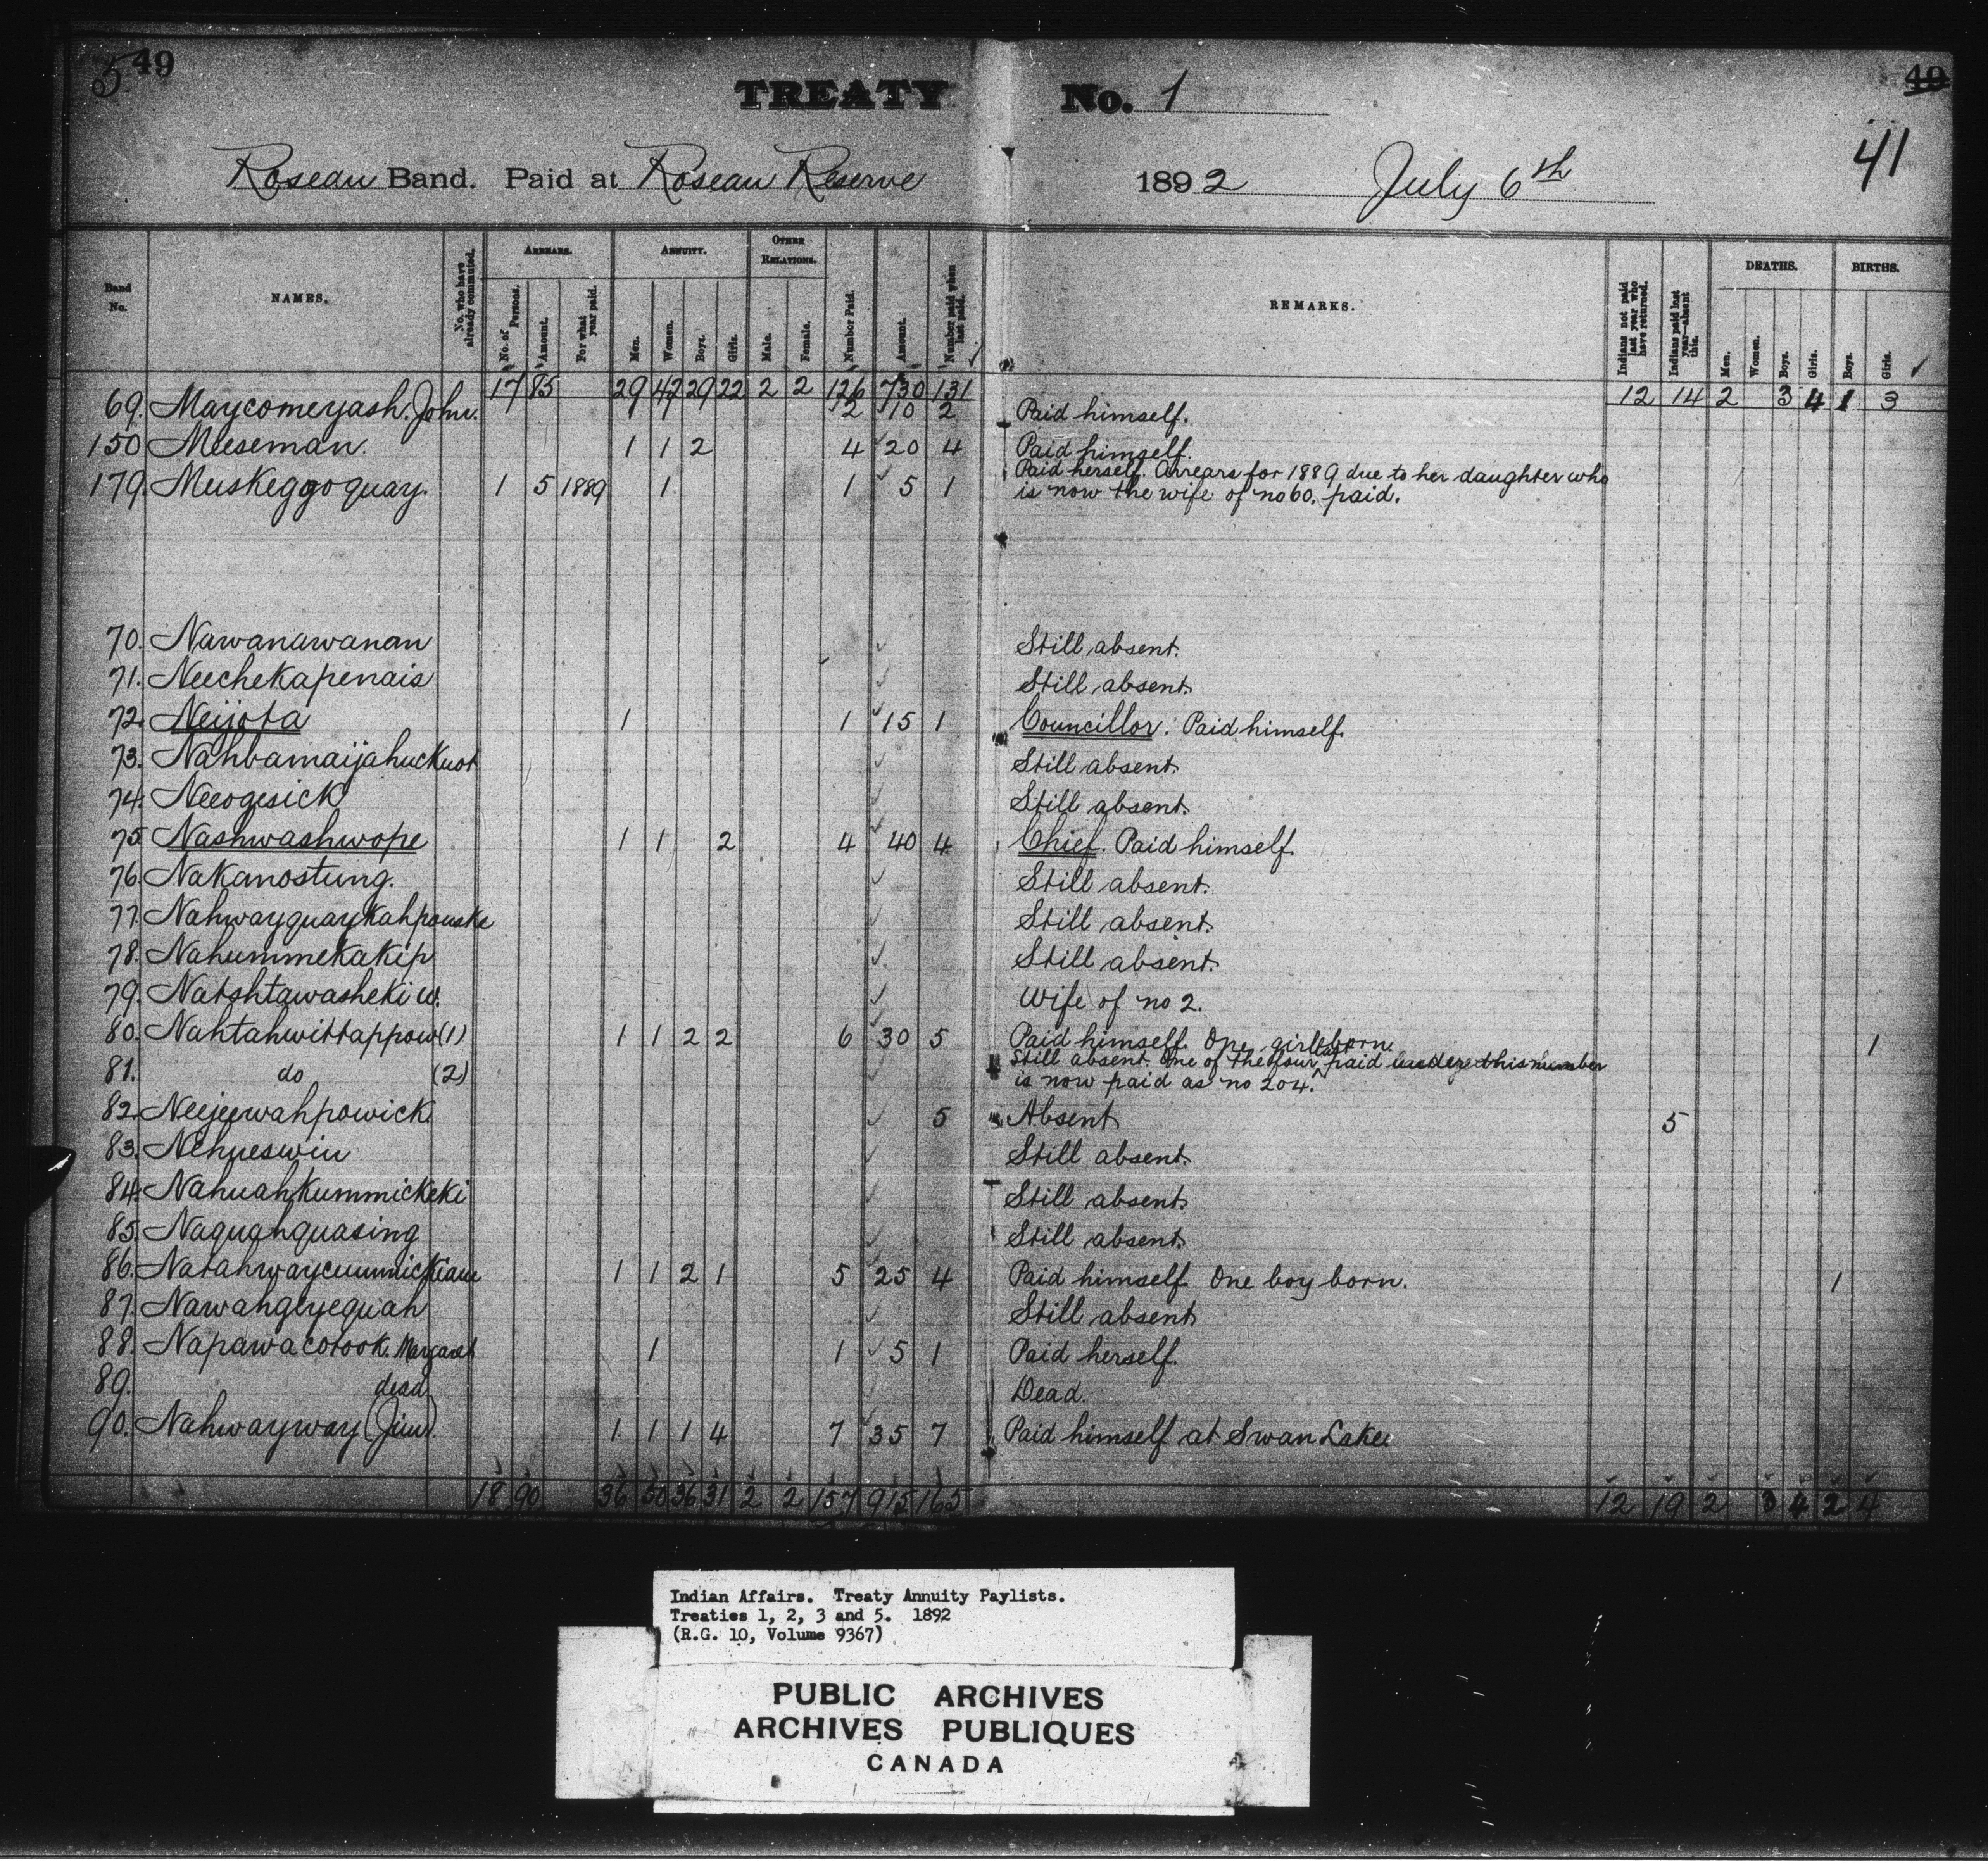 5 49
TREATY No. 1
49
41
Roseau Band. Paid at Roseau Reserve 1892 July 6th
Band No.
NAMES.
No. who have already commuted.
ARREARS.
No. of Persons.
Amount.
For what year paid.
ANNUITY.
Men.
Women.
Boys.
Girls.
OTHER RELATIONS.
Male.
Female.
Number Paid.
Amount.
Number paid when last paid.
REMARKS.
Indians not paid last year who have returned.
Indians paid last year—absent this.
DEATHS.
Men.
Women.
Boys.
Girls.
BIRTHS.
Boys.
Girls.
17 85 29 47 29 22 2 2 126 730 131 12 14 2 3 4 1 3
69. Maycomeyash. John. 2 10 2 Paid himself.
150 Meeseman. 1 1 2 4 20 4 Paid himself.
179. Muskeggoquay. 1 5 1889 1 1 5 1 Paid herself. Arrears for 1889 due to her daughter who
is now the wife of no 60, paid.
70. Nawanawanan Still absent.
71. Neechekapenais Still absent.
72. Neijota 1 1 15 1 Councillor. Paid himself.
73. Nahbamaijahuckuot Still absent.
74. Neeogesick Still absent.
75. Nashwashwope 1 1 2 4 40 4 Chief. Paid himself.
76. Nakanostung. Still absent.
77. Nahwayquaykahpouske Still absent.
78. Nahummekakip Still absent.
79. Natshtawasheki W. Wife of no 2.
80. Nahtahwittappow (1) 1 1 2 2 6 30 5 Paid himself. One girl born. 1
81. do (2) Still absent. One of the four last paid under this number
is now paid as no 204.
82. Neejeewahpowick 5 Absent 5
83. Nehueswin Still absent.
84. Nahuahkummickeki Still absent.
85. Naquahquasing Still absent.
86. Natahwaycummickiawe 1 1 2 1 5 25 4 Paid himself. One boy born. 1
87. Nawahgeyequah Still absent
88. Napawacotook. Margaret 1 1 5 1 Paid herself.
89. dead Dead.
90. Nahwayway (Jim) 1 1 1 4 7 35 7 Paid himself at Swan Lake
18 90 36 50 36 31 2 2 157 915 165 12 19 2 3 4 2 4
Indian Affairs. Treaty Annuity Paylists.
Treaties 1, 2, 3 and 5. 1892
(R.G. 10, Volume 9367)
PUBLIC ARCHIVES
ARCHIVES PUBLIQUES
CANADA